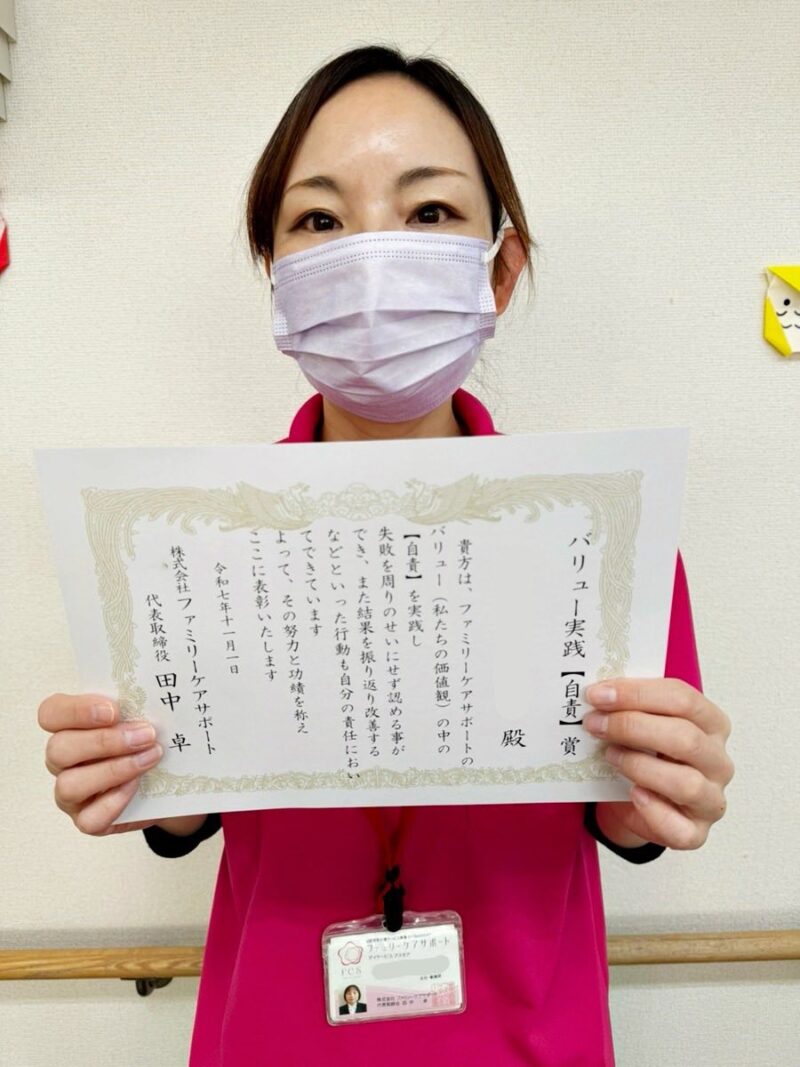 バリュー実践【自責】賞
殿
貴方は、ファミリーケアサポートの
バリュー（私たちの価値観）の中の
【自責】を実践し
失敗を周りのせいにせず認める事が
でき、また結果を振り返り改善する
などといった行動も自分の責任におい
てできています
よって、その努力と功績を称え
ここに表彰いたします
令和七年十一月一日
株式会社ファミリーケアサポート
代表取締役 田中 卓
ファミリーケアサポート
FCS